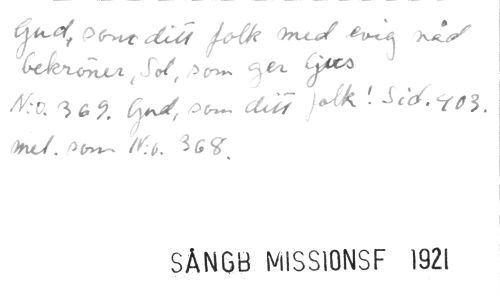 Gud, som ditt folk med evig nåd
bekröner, Sol, som ger ljus
N:o. 369. Gud, som ditt folk! Sid. 403.
mel. som N:o. 368.
SÅNGB MISSIONSF 1921